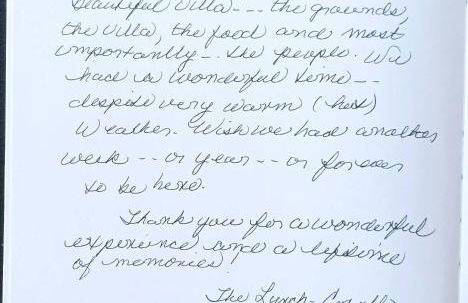 Beautiful Villa--- the grounds,
the villa, the food and most
importantly-- the people. We
had a wonderful time--
despite very warm (hot)
weather. Wish we had another
week -- or year -- or forever
to be here.
Thank you for a wonderful
experience and a lifetime
of memories!
The Lynch-